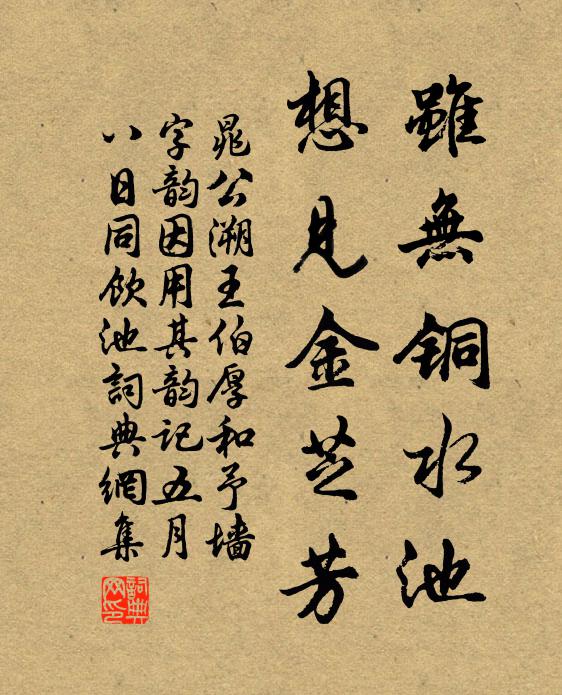 雖無銅水池
想見金芝芳
晁公溯王伯厚和予墻
字韵因用其韵記五月
八日同飲池詞典網集
詞典网印